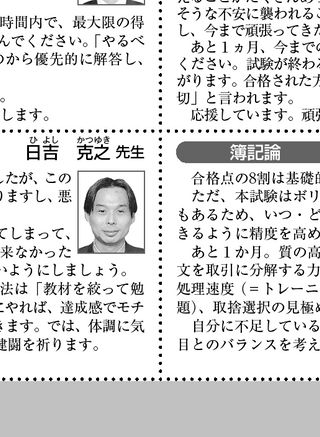 時間内で、最大限の得
んでください。「やるべ
のから優先的に解答し、
。
します。
ひよし かつゆき
日吉 克之 先生
したが、この
りますし、悪
てしまって、
来なかった
いようにしましょう。
法は「教材を絞って勉
にやれば、達成感でモチ
きます。では、体調に気
健闘を祈ります。
そうな不安に襲われるこ
し、今まで頑張ってきた
あと1ヵ月、今までの
ください。試験が終わる
がります。合格された方
切」と言われます。
応援しています。頑張
簿記論
合格点の8割は基礎的
ただ、本試験はボリ
もあるため、いつ・ど
きるように精度を高め
あと1か月。質の高
文を取引に分解する力
処理速度(=トレーニ
題)、取捨選択の見極め
自分に不足している
目とのバランスを考え